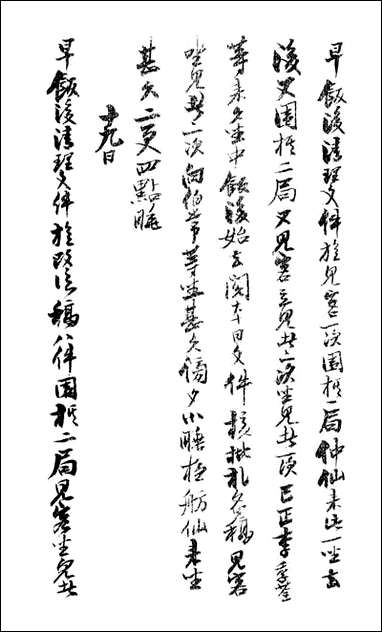 早飯後清理文件旋見客一次圍棋一局仲仙來此一坐去
後又圍棋二局又見客立見者二次坐見者一次巳正李季荃
等來久坐中飯後始去閱本日文件核批札各稿見客
坐見者二次向伯常等坐甚久傍夕小睡夜舫仙來坐
甚久二更四點睡
十九日
早飯後清理文件旋改信稿八件圍棋二局見客坐見者